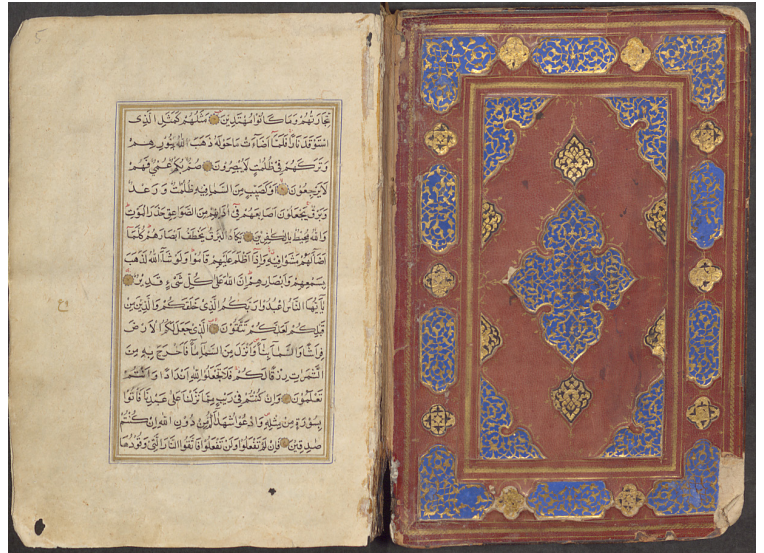 تِجَارَتُهُمْ وَمَا كَانُوا مُهْتَدِينَ مَثَلُهُمْ كَمَثَلِ الَّذِي
اسْتَوْقَدَ نَارًا فَلَمَّا اَضَاءَتْ مَا حَوْلَهُ ذَهَبَ اللهُ بِنُورِهِمْ
وَتَرَكَهُمْ فِي ظُلُمٰتٍ لَا يُبْصِرُونَ صُمٌّ بُكْمٌ عُمْيٌ فَهُمْ
لَا يَرْجِعُونَ اَوْ كَصَيِّبٍ مِنَ السَّمَاءِ فِيهِ ظُلُمٰتٌ وَرَعْدٌ
وَبَرْقٌ يَجْعَلُونَ اَصَابِعَهُمْ فِي اٰذَانِهِمْ مِنَ الصَّوَاعِقِ حَذَرَ الْمَوْتِ
وَاللهُ مُحِيطٌ بِالْكٰفِرِينَ يَكَادُ الْبَرْقُ يَخْطَفُ اَبْصَارَهُمْ كُلَّمَا
اَضَاءَ لَهُمْ مَشَوْا فِيهِ وَاِذَا اَظْلَمَ عَلَيْهِمْ قَامُوا وَلَوْ شَاءَ اللهُ لَذَهَبَ
بِسَمْعِهِمْ وَاَبْصَارِهِمْ اِنَّ اللهَ عَلٰى كُلِّ شَيْءٍ قَدِيرٌ
يَا اَيُّهَا النَّاسُ اعْبُدُوا رَبَّكُمُ الَّذِي خَلَقَكُمْ وَالَّذِينَ مِنْ
قَبْلِكُمْ لَعَلَّكُمْ تَتَّقُونَ الَّذِي جَعَلَ لَكُمُ الْاَرْضَ
فِرَاشًا وَالسَّمَاءَ بِنَاءً وَاَنْزَلَ مِنَ السَّمَاءِ مَاءً فَاَخْرَجَ بِهِ مِنَ
الثَّمَرَاتِ رِزْقًا لَكُمْ فَلَا تَجْعَلُوا لِلّٰهِ اَنْدَادًا وَاَنْتُمْ
تَعْلَمُونَ وَاِنْ كُنْتُمْ فِي رَيْبٍ مِمَّا نَزَّلْنَا عَلٰى عَبْدِنَا فَاْتُوا
بِسُورَةٍ مِنْ مِثْلِهِ وَادْعُوا شُهَدَاءَكُمْ مِنْ دُونِ اللهِ اِنْ كُنْتُمْ
صٰدِقِينَ فَاِنْ لَمْ تَفْعَلُوا وَلَنْ تَفْعَلُوا فَاتَّقُوا النَّارَ الَّتِي وَقُودُهَا